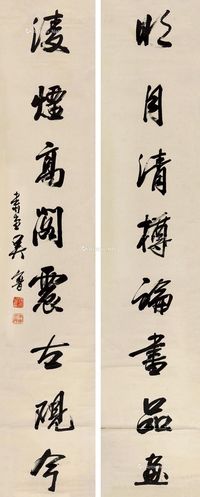 明月清樽論書品画
凌煙高閣震古硯今
肅堂吳魯